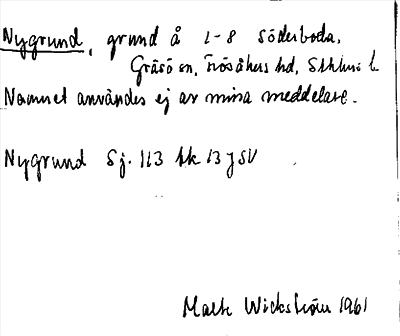 Nygrund, grund å 1-8 Söderboda,
Gräsö sn, Frösåkers hd, Sthlms l.
Namnet användes ej av mina meddelare.
Nygrund Sj. 113 bk 13 j SV
Malte Wickström 1961